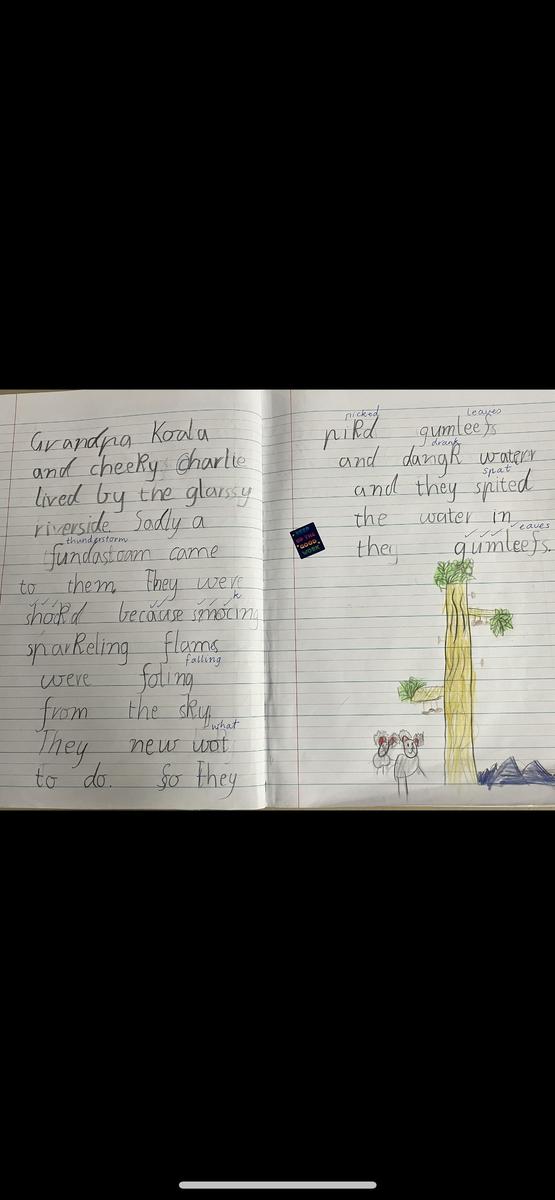 Grandpa Koala
and cheeky Charlie
lived by the glarssy
riverside. Sadly a
thunderstorm
fundastoam came
to them. They were
k
shoRd because smocing
sparkeling flams
falling
were foling
from the sky.
what
They new wot
to do. So they
picked leaves
piRd gumleefs
drank
and dangk waterr
spat
and they spited
the water in
leaves
they gumleefs.
KEEP
UP THE
GOOD
WORK